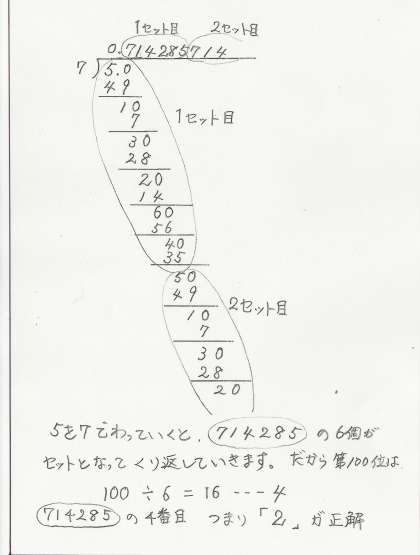 1セット目 2セット目
0.714285714
7)5.0
49
10
7
1セット目
30
28
20
14
60
56
40
35
50
49
2セット目
10
7
30
28
20
5を7でわっていくと、714285の6個が
セットとなってくり返していきます。だから第100位は
100÷6=16---4
714285の4番目 つまり「2」が正解